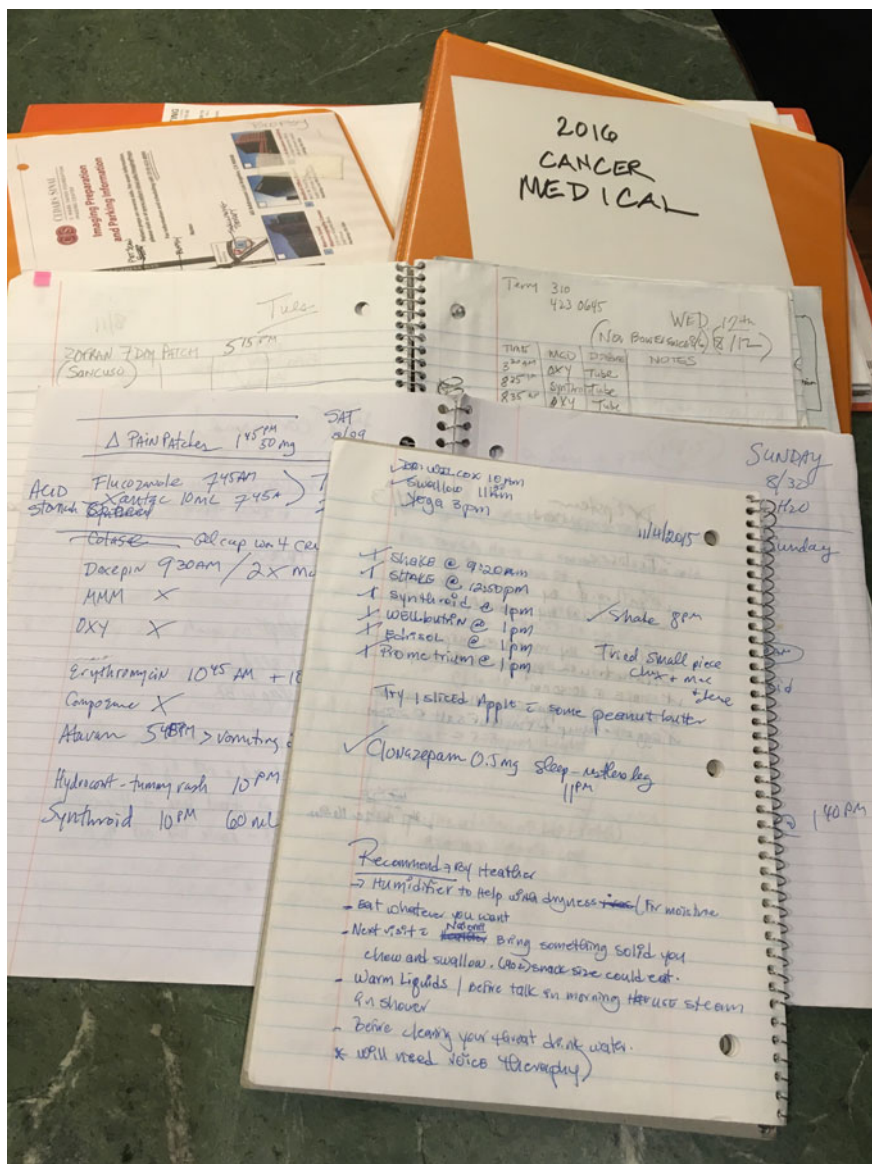 2016
CANCER
MEDICAL
CEDARS-SINAI
Imaging Preparation
and Parking Information
Tues
ZOFRAN 7 DAY PATCH 5 15 PM
(SANCUSO)
Terry 310
423 0645
WED 12th
(No Bowel since 8/6) (8/12)
TIME MED DOSAGE NOTES
3 20 AM OXY Tube
8 25 Synthroid Tube
8 35 OXY Tube
SAT
8/29
Δ PAIN Patches 1 45 PM 50 mg
ACID Flucozanole 7 45 AM
Stomach Xantac 10 mL 7 45 A
Colase
Doxepin 9 30 AM / 2x
MMM X
OXY X
Erythromycin 10 45 AM +
Compozine X
Atavan 5 45 PM > vomiting
Hydrocort - tummy rash 10 PM
Synthroid 10 PM 60 mL
SUNDAY
8/30
H2O
Sunday
@ 1 40 PM
Dr. Wilcox 10 Am
Swallow 11 Am
Yoga 3pm
11/4/2015
X Shake @ 9:20am
X SHAKE @ 12:50pm
X Synthroid @ 1pm
X Wellbutrin @ 1pm
X Edrisol @ 1pm
X Prometrium @ 1pm
✓ Shake 8pm
Tried small piece
chix + mac
+ cheese
Try 1 sliced Apple c̄ some peanut butter
✓ Clonazepam 0.5mg sleep - restless leg
11 PM
Recommend → By Heather
→ Humidifier to Help with dryness (For moisture
- Eat whatever you want
- Next visit c̄ Bring something solid you
chew and swallow. snack size could eat.
- Warm Liquids / Before talk in morning use steam
in shower
- Before clearing your throat drink water.
* will need voice theraphy)